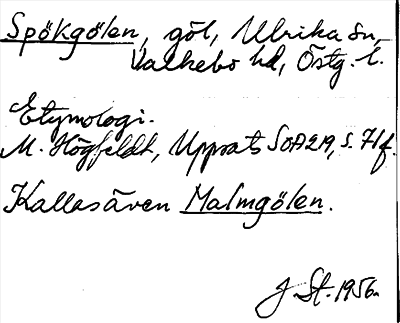 Spökgölen, göl, Ulrika sn,
Valkebo hd, Östg. l.
Etymologi.
M. Högfeldt, Uppsats SOA 219, s. 71f.
Kallas även Malmgölen.
J. St. 1956.